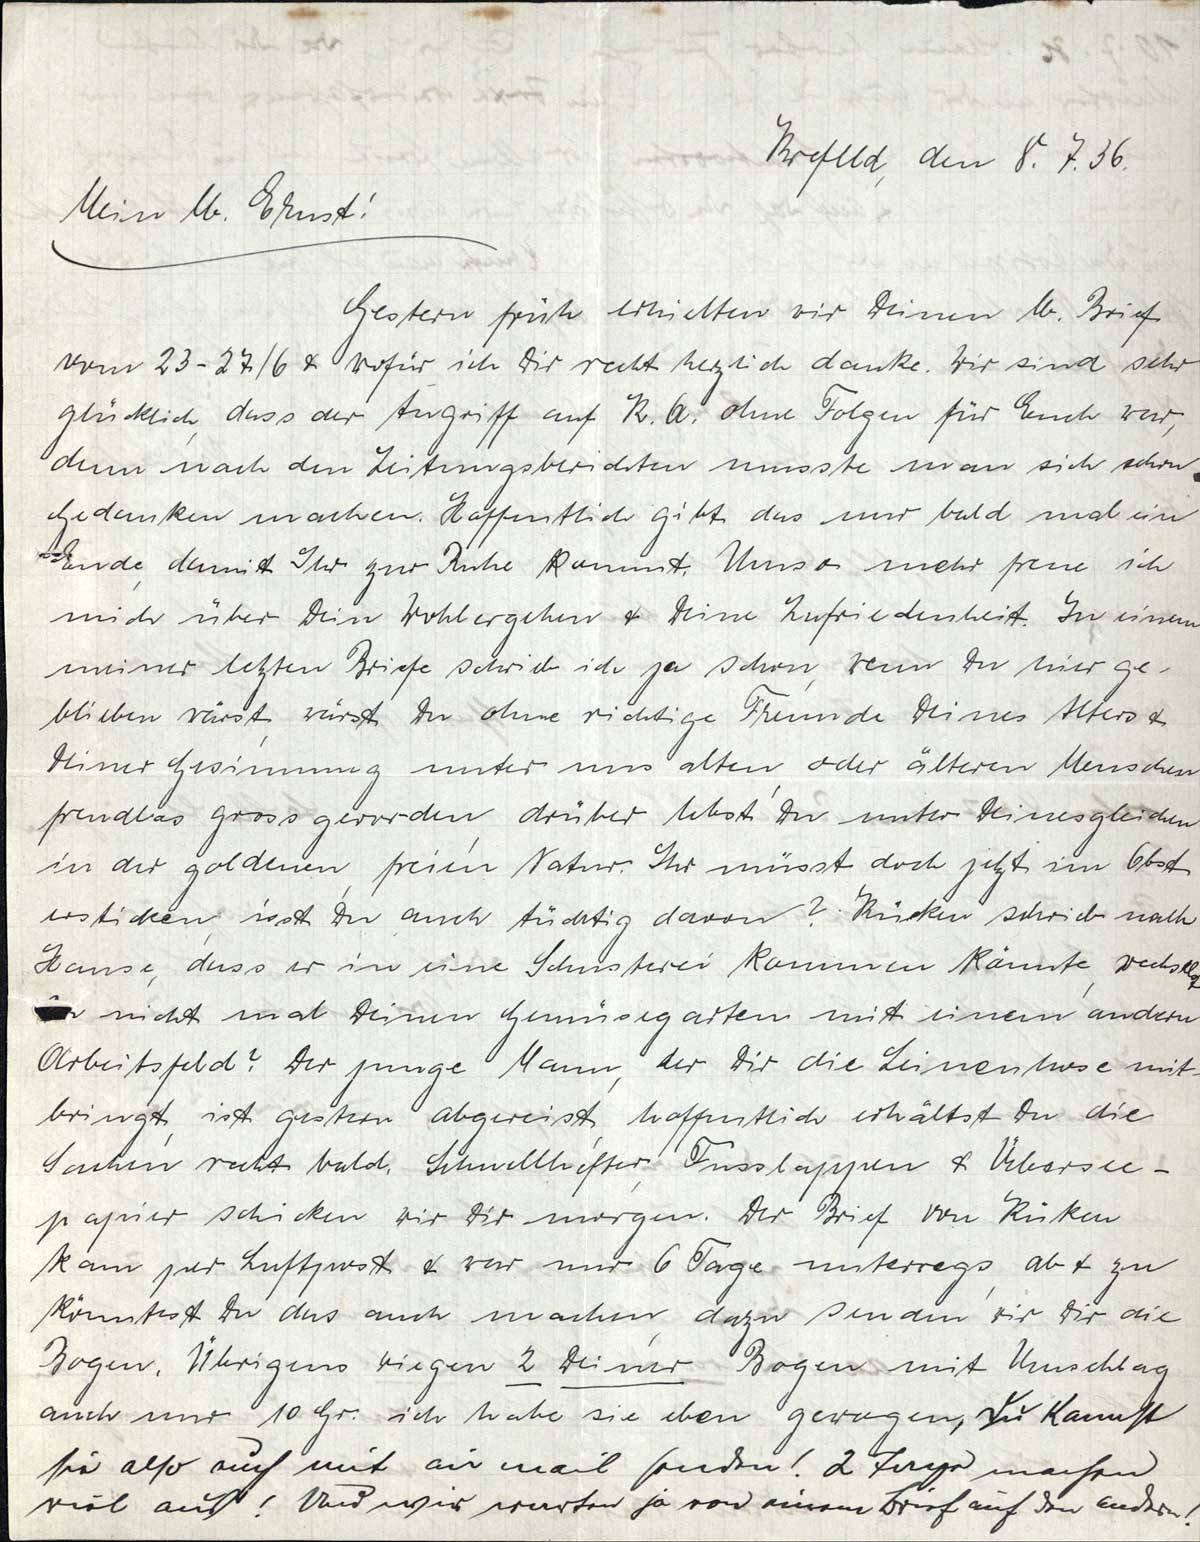 Krefeld, den 8. 7. 36.
Mein lb. Ernst!
Gestern früh erhielten wir Deinen lb. Brief
vom 23-27/6 & wofür ich Dir recht herzlich danke. Wir sind sehr
glücklich, dass der Angriff auf K. A. ohne Folgen für Euch war,
denn nach den Zeitungsberichten musste man sich schon
Gedanken machen. Hoffentlich gibt das nur bald mal ein
Ende, damit Ihr zur Ruhe kommt. Umso mehr freue ich
mich über Dein Wohlergehen & Deine Zufriedenheit. In einem
meiner letzten Briefe schrieb ich ja schon, wenn Du hier ge-
blieben wärst, wärst Du ohne richtige Freunde Deines Alters &
Deiner Gesinnung unter uns alten oder älteren Menschen
freudlos gross geworden, drüber lebst Du unter Deinesgleichen
in der goldenen, freien Natur. Ihr müsst doch jetzt im Obst
ersticken, isst Du auch tüchtig davon? Küken schrieb nach
Hause, dass er in eine Schusterei kommen könnte, wechselst
nicht mal Deinen Gemüsegarten mit einem andern
Arbeitsfeld? Der junge Mann, der Dir die Leinenhose mit-
bringt, ist gestern abgereist, hoffentlich erhältst Du die
Sachen recht bald. Schnellhefter, Fusslappen & Übersee-
papier schicken wir Dir morgen. Der Brief von Küken
kam per Luftpost & war nur 6 Tage unterwegs, ab & zu
könntest Du das auch machen, dazu senden wir Dir die
Bogen. Übrigens wiegen 2 Deiner Bogen mit Umschlag
auch nur 10 Gr. ich habe sie eben gewogen, Du kannst
sie also auch mit air mail senden! 2 Tage machen
viel aus! Und wir warten ja von einem Brief auf den andern!